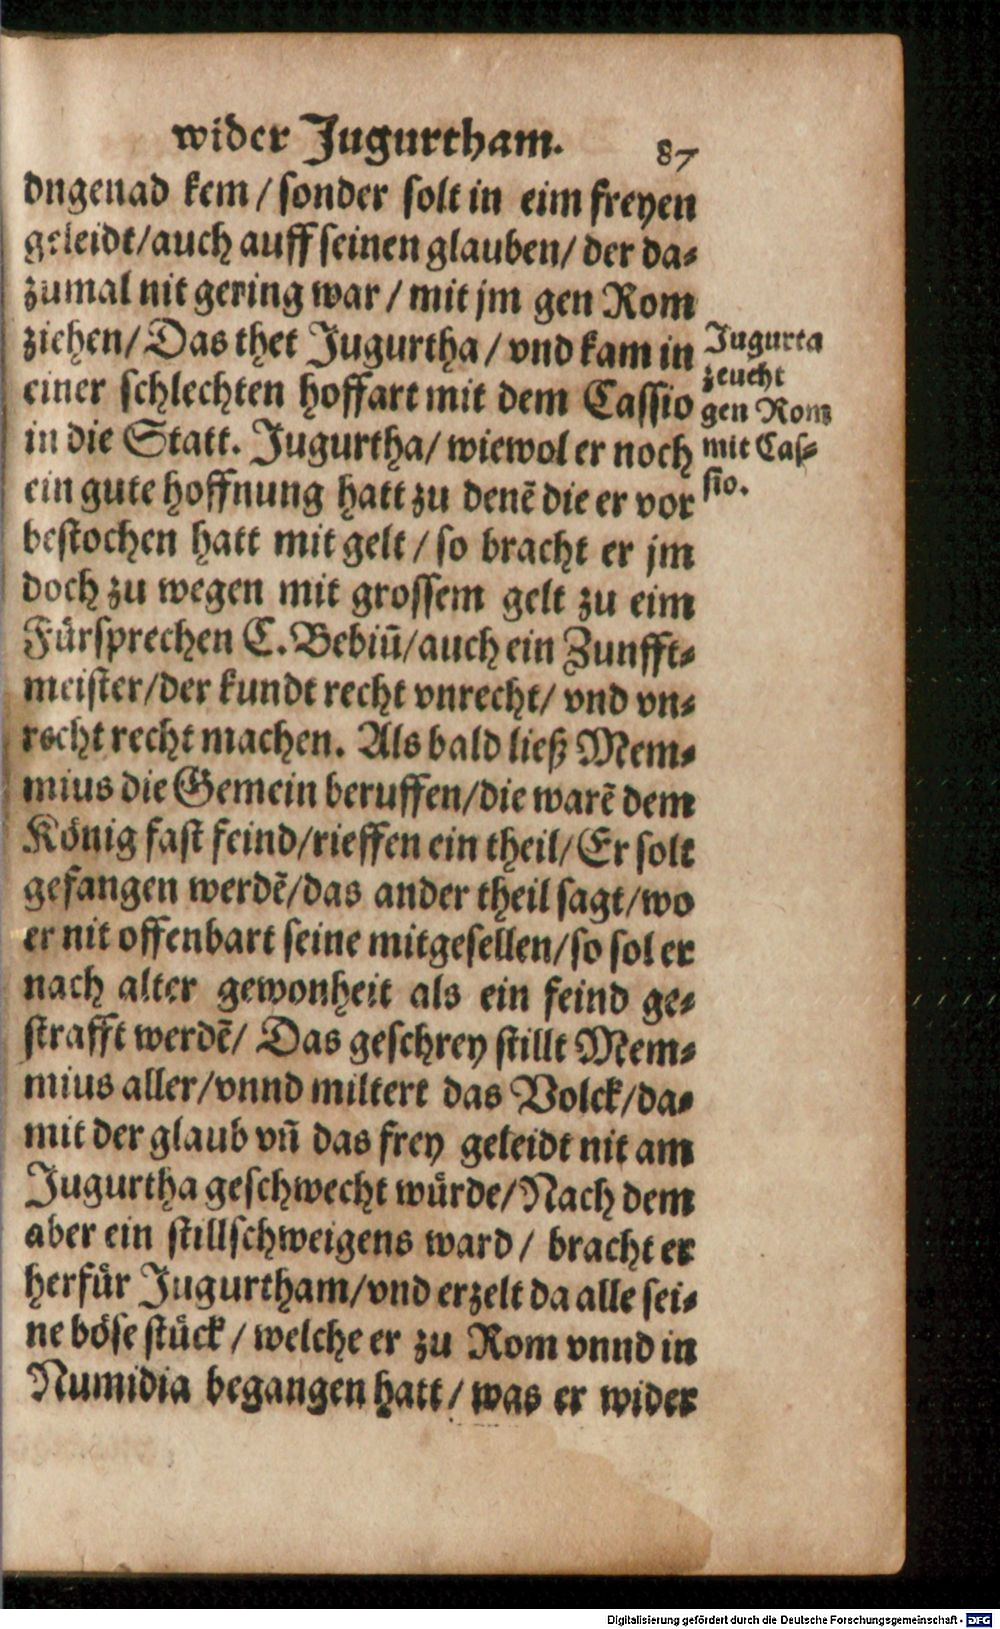 wider Jugurtham. 87
vngenad kem / sonder solt in eim freyen
geleidt/auch auff seinen glauben/ der da⸗
zumal nit gering war / mit jm gen Rom
ziehen/ Das thet Jugurtha / vnd kam in
einer schlechten hoffart mit dem Cassio
in die Statt. Jugurtha/ wiewol er noch
ein gute hoffnung hatt zu denē die er vor
bestochen hatt mit gelt / so bracht er jm
doch zu wegen mit grossem gelt zu eim
Fürsprechen C. Bebiū/auch ein Zunfft⸗
meister/der kundt recht vnrecht/ vnd vn⸗
recht recht machen. Als bald ließ Mem⸗
mius die Gemein beruffen/die warē dem
König fast feind/rieffen ein theil/ Er solt
gefangen werdē/das ander theil sagt/wo
er nit offenbart seine mitgesellen/so sol er
nach alter gewonheit als ein feind ge⸗
strafft werdē/ Das geschrey stillt Mem⸗
mius aller/vnnd miltert das Volck/da⸗
mit der glaub vñ das frey geleidt nit am
Jugurtha geschwecht würde/Nach dem
aber ein stillschweigens ward / bracht er
herfür Jugurtham/vnd erzelt da alle sei⸗
ne böse stück / welche er zu Rom vnnd in
Numidia begangen hatt / was er wider
Jugurta
zeucht
gen Rom
mit Cas⸗
sio.
Digitalisierung gefördert durch die Deutsche Forschungsgemeinschaft - DFG